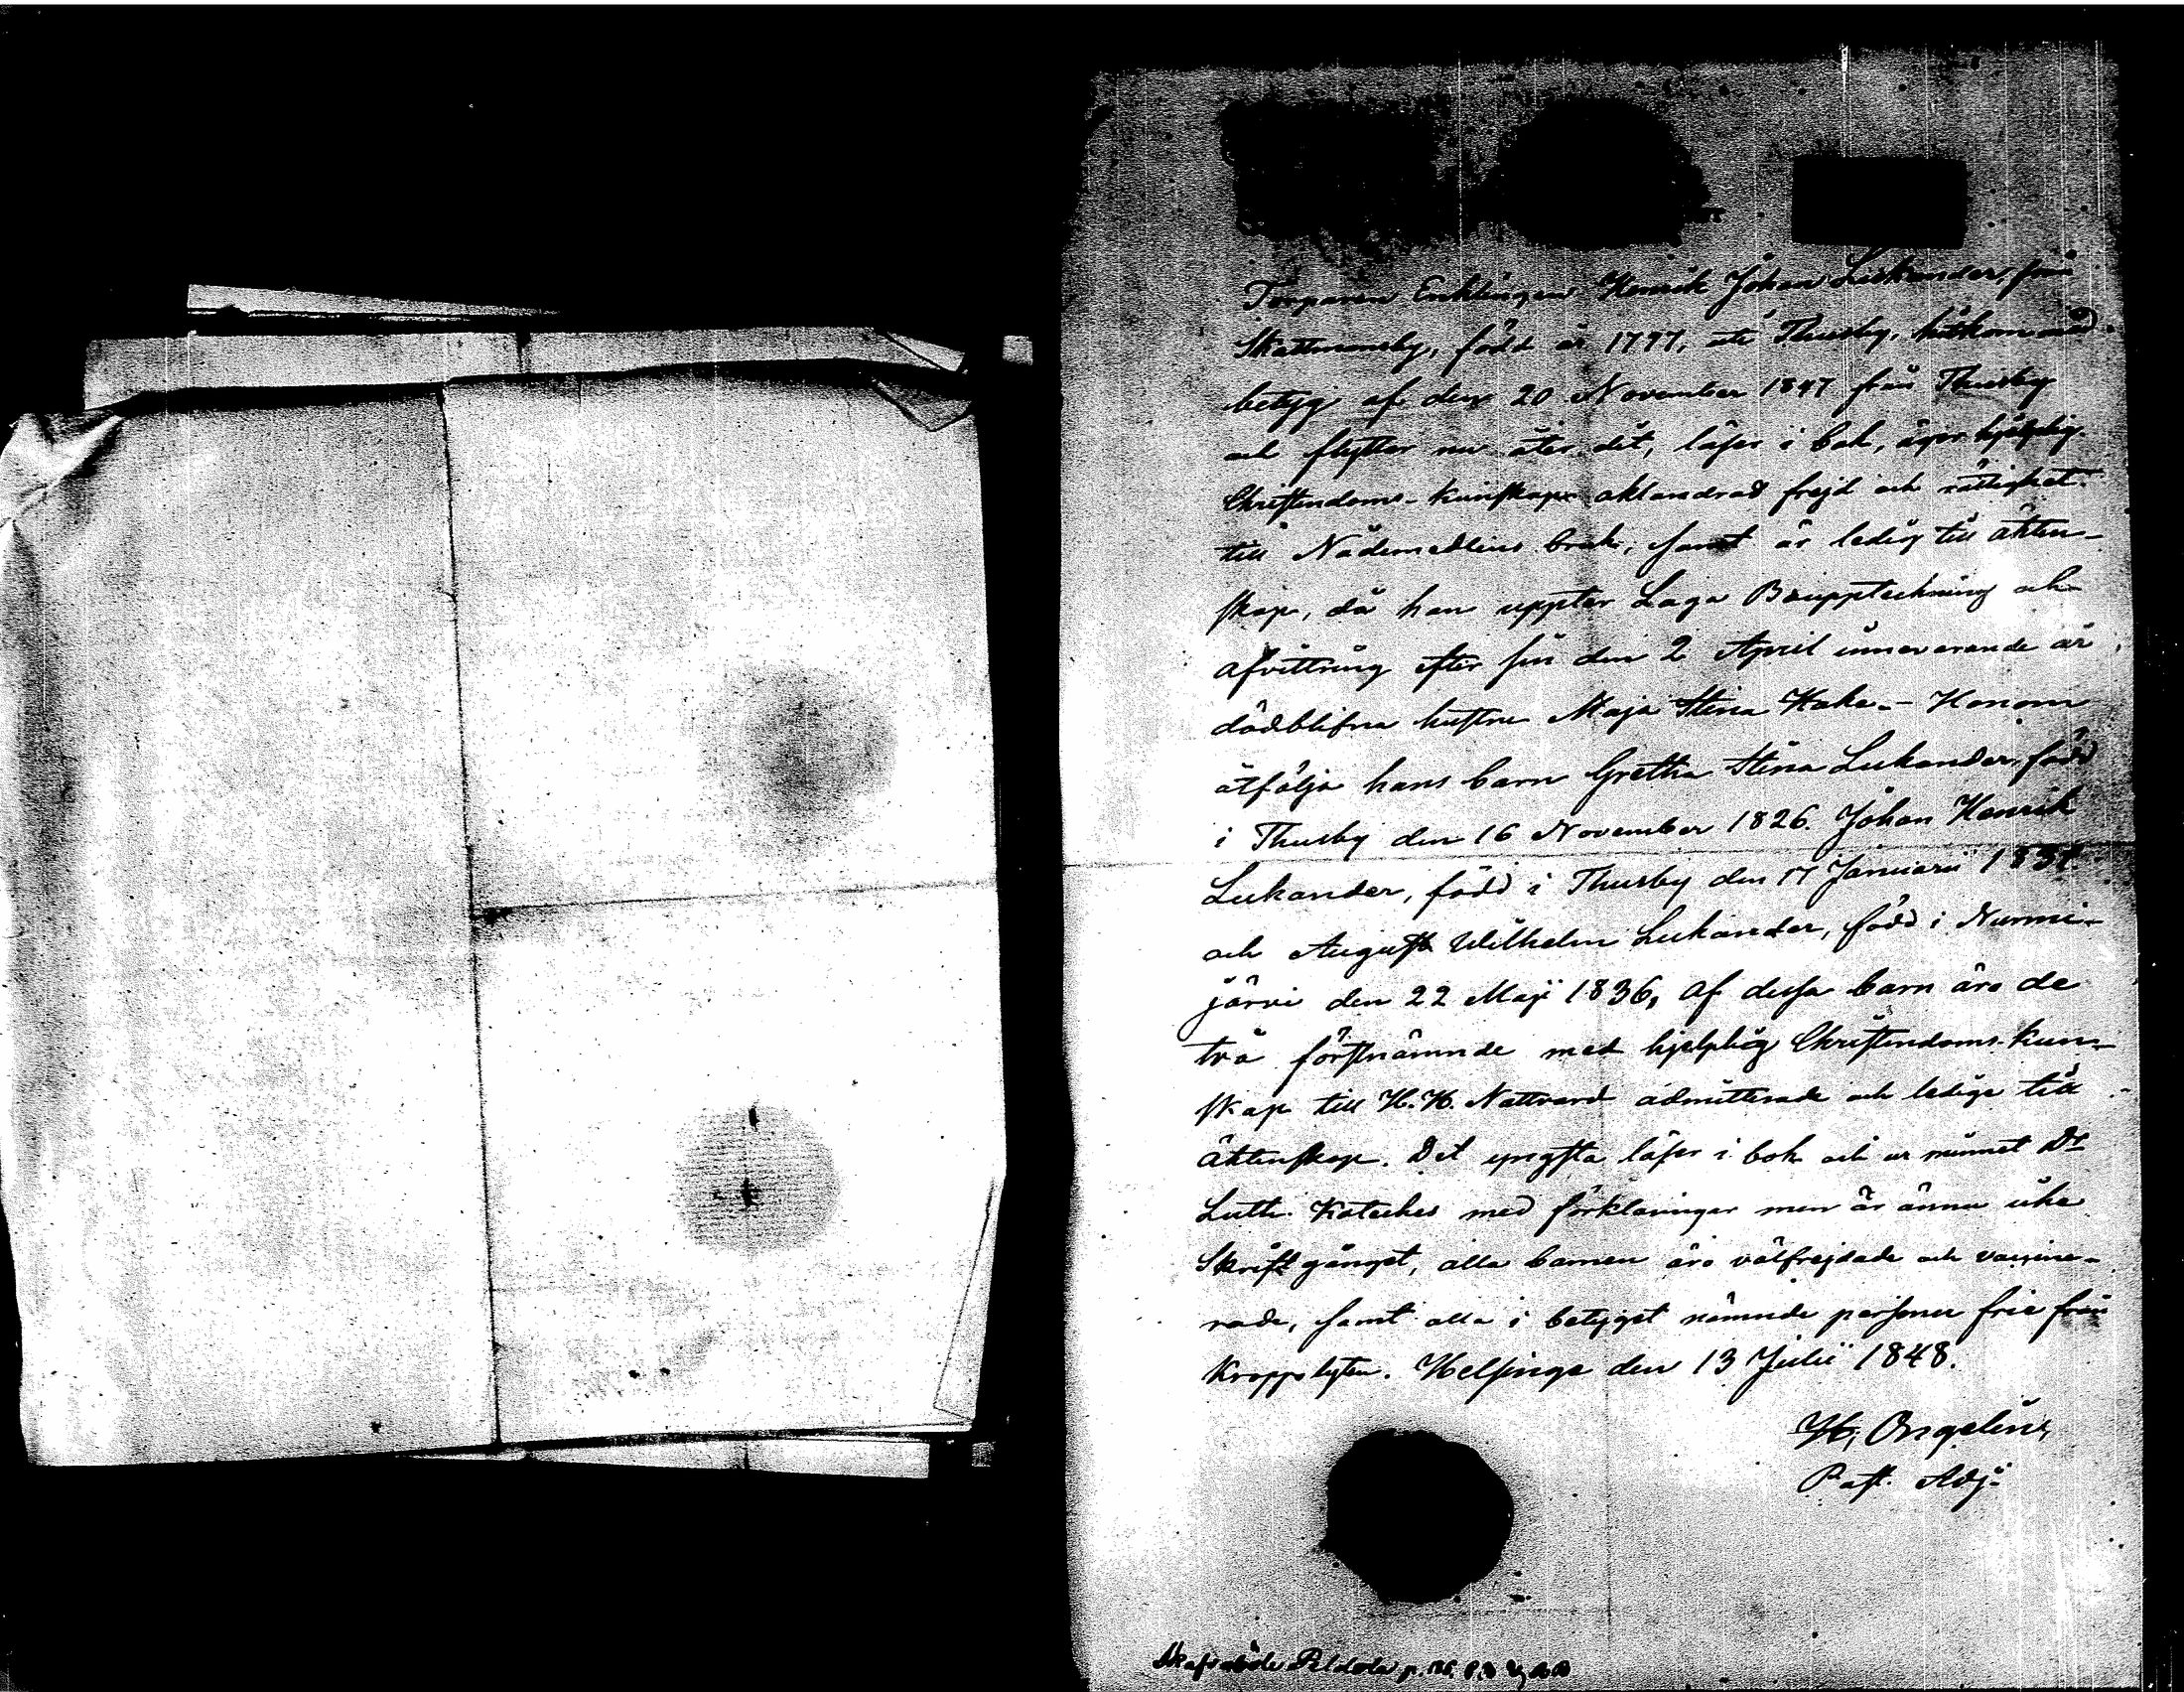 Torparen Enklingen Henrik Johan Lukander, från
Skattmansby, född år 1797, uti Thusby, hitkom med
betyg af den 20 November 1847 från Thusby
och flyttar nu åter dit, läser i bok, äger hjelplig
Christendoms-kunskap oklandrad frejd och rättighet
till Nådemedlens bruk, samt är ledig till äkten-
skap, då han uppter Laga Bouppteckning och
afvittring efter sin den 2 April innevarande år
dödblifna hustru Maja Stina - Honom
åtfölja hans barn Gretha Stina Lukander, född
i Thusby den 16 November 1826. Johan Henrik
Lukander, född i Thusby den 17 Januarii
och August Wilhelm Lukander, född i Nurmi-
järvi den 22 Maji 1836, af dessa barn äro de
två förstnämnde med hjelplig Christendoms kun-
skap till H. H. Nattvard admitterade och ledige till
äktenskap. Det yngsta läser i bok och ur minnet Dr
Luth. Kateches med förklaringar men är ännu icke
Skriftgånget, alla barnen äro välfrejdade och vaccine-
rade, samt alla i betyget nämnde personer frie från
Kroppslyten. Helsinge den 13 Julii 1848.
H. Ongelin,
Past. Adj.